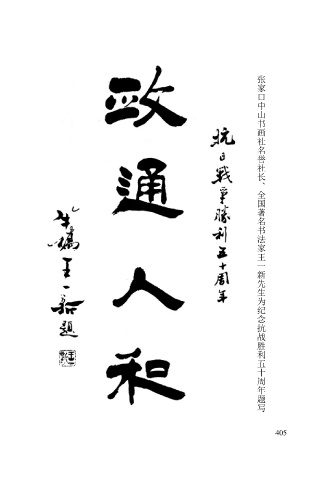 张家口中山书画社名誉社长、全国著名书法家王一新先生为纪念抗战胜利五十周年题写
抗日战争勝利五十周年
政通人和
王一新题
405